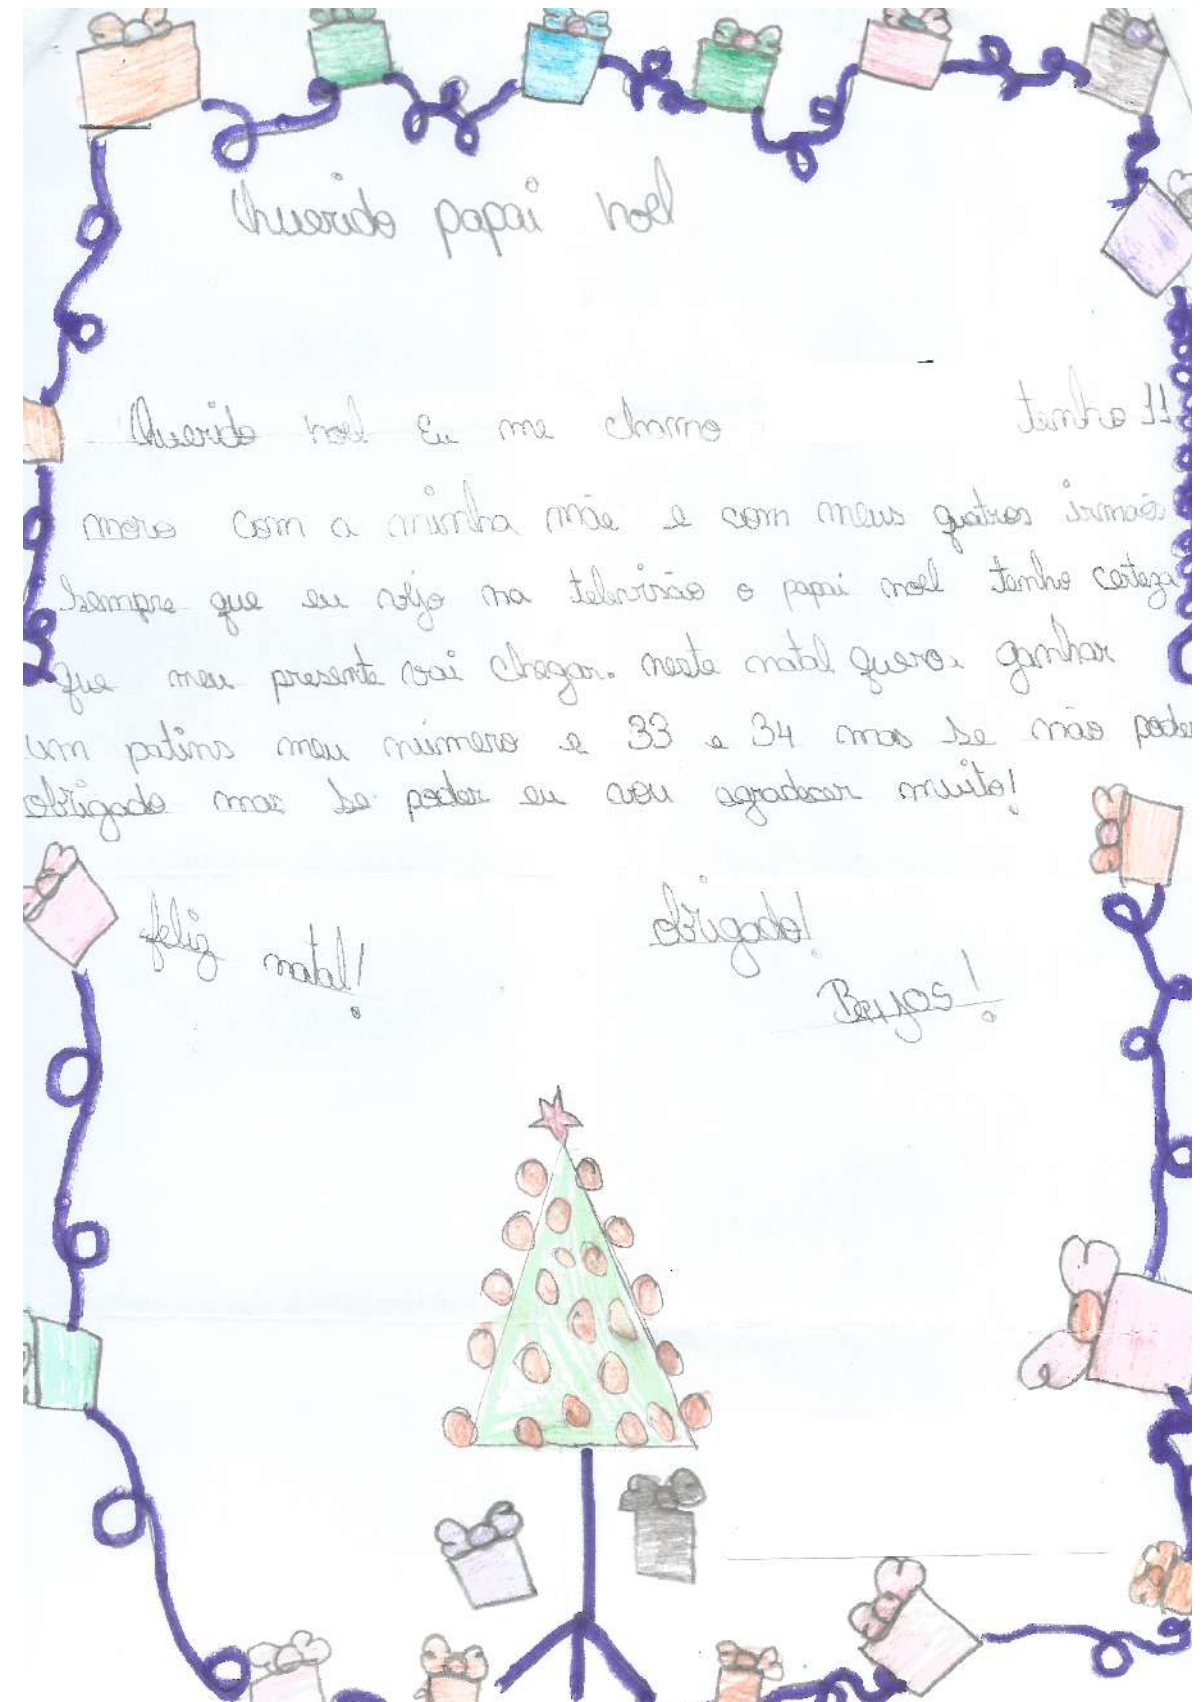 Querido papai noel
Querido noel Eu me chmmo tenho 11
moro com a minha mãe e com meus quatros irmãos
Sempre que eu vejo na televisão o papai noel tenho certeza
que meu presente vai chegar. neste natal quero ganhar
um patins meu número e 33 e 34 mas se não poder
obrigado mas se poder eu vou agradecer muito!
feliz natal!
obrigado!
Beijos!